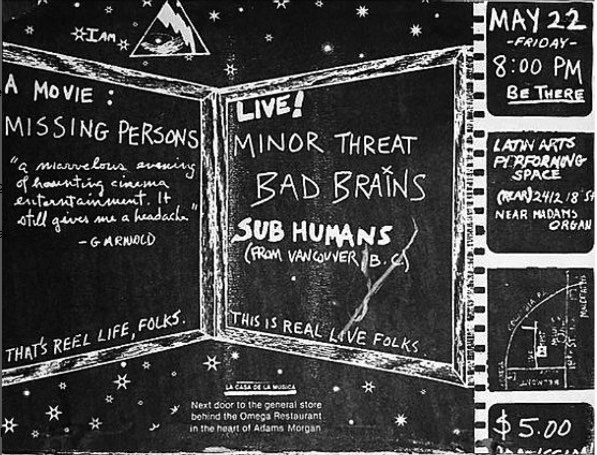 I AM
A MOVIE:
MISSING PERSONS
"a marvelous evening
of haunting cinema
entertaintment. It
still gives me a headache."
- G ARNOLD
THAT'S REEL LIFE, FOLKS.
LIVE!
MINOR THREAT
BAD BRAINS
SUB HUMANS
(FROM VANCOUVER, B.C.)
THIS IS REAL LIVE FOLKS
LA CASA DE LA MUSICA
Next door to the general store
behind the Omega Restaurant
in the heart of Adams Morgan
MAY 22
-FRIDAY-
8:00 PM
BE THERE
LATIN ARTS
PERFORMING
SPACE
(REAR) 2412 18 ST
NEAR MADAMS
ORGAN
BELMONT
$5.00